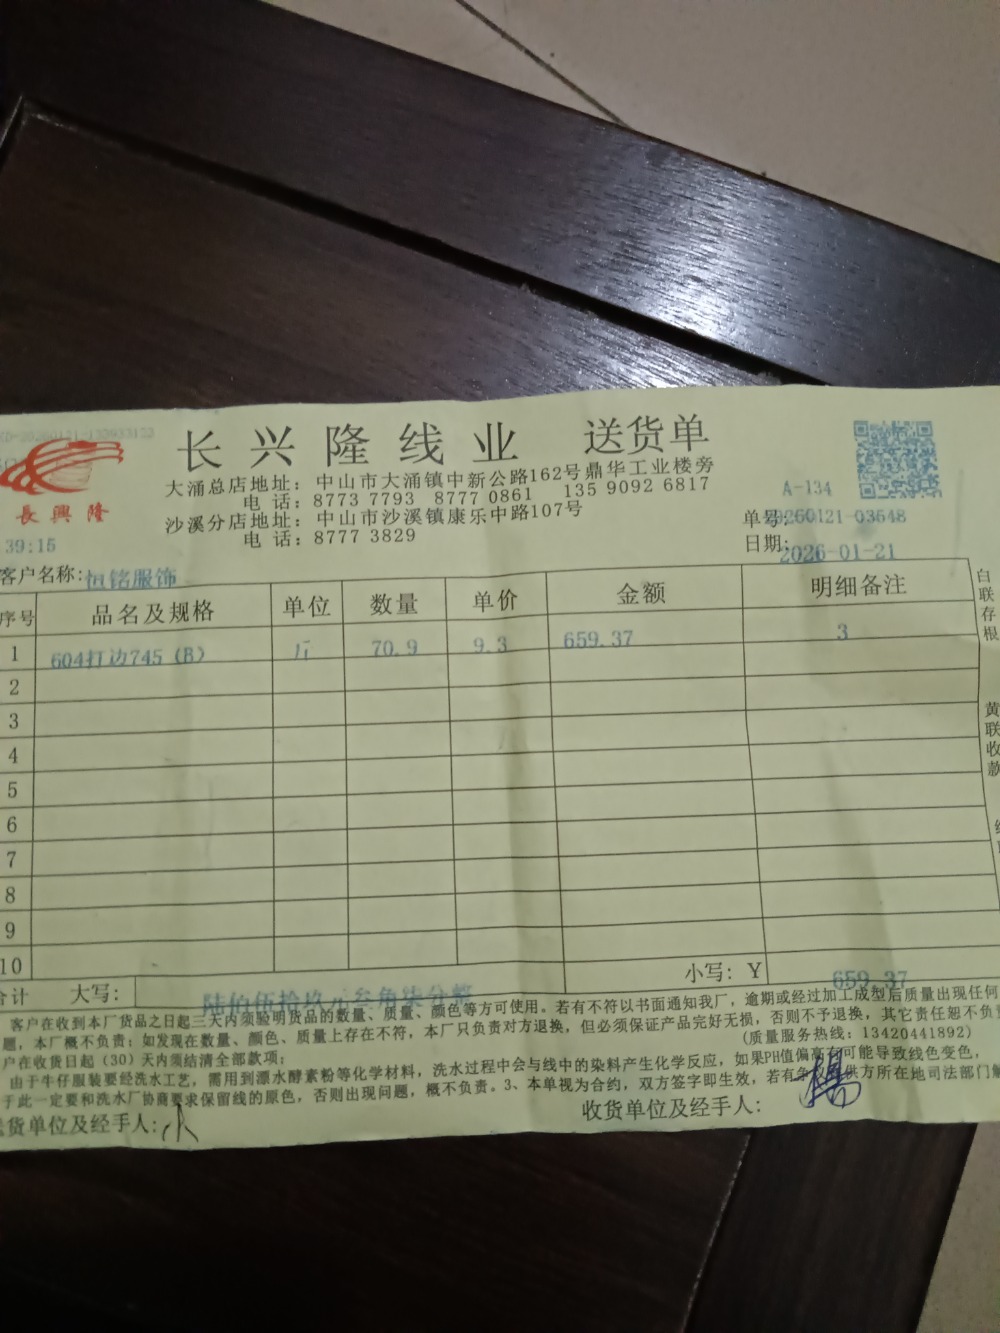 长兴隆线业 送货单
大涌总店地址：中山市大涌镇中新公路162号鼎华工业楼旁
电话：8773 7793 8777 0861 135 9092 6817
沙溪分店地址：中山市沙溪镇康乐中路107号
电话：8777 3829
長興隆
A-134
39:15
单号:20260121-03648
日期:2026-01-21
客户名称:恒铭服饰
序号 品名及规格 单位 数量 单价 金额 明细备注
1 604打边745 (B) 斤 70.9 9.3 659.37 3
2
3
4
5
6
7
8
9
10
合计 大写：陆佰伍拾玖元叁角柒分整 小写：Y 659.37
白联存根
黄联收款
客户在收到本厂货品之日起三天内须验明货品的数量、质量、颜色等方可使用。若有不符以书面通知我厂，逾期或经过加工成型后质量出现任何
题，本厂概不负责；如发现在数量、颜色、质量上存在不符，本厂只负责对方退换，但必须保证产品完好无损，否则不予退换，其它责任恕不负
户在收货日起（30）天内须结清全部款项；
(质量服务热线：13420441892)
由于牛仔服装要经洗水工艺，需用到漂水酵素粉等化学材料，洗水过程中会与线中的染料产生化学反应，如果PH值偏高有可能导致线色变色，
于此一定要和洗水厂协商要求保留线的原色，否则出现问题，概不负责。3、本单视为合约，双方签字即生效，若有争议 供方所在地司法部门
货单位及经手人:
收货单位及经手人: 楊